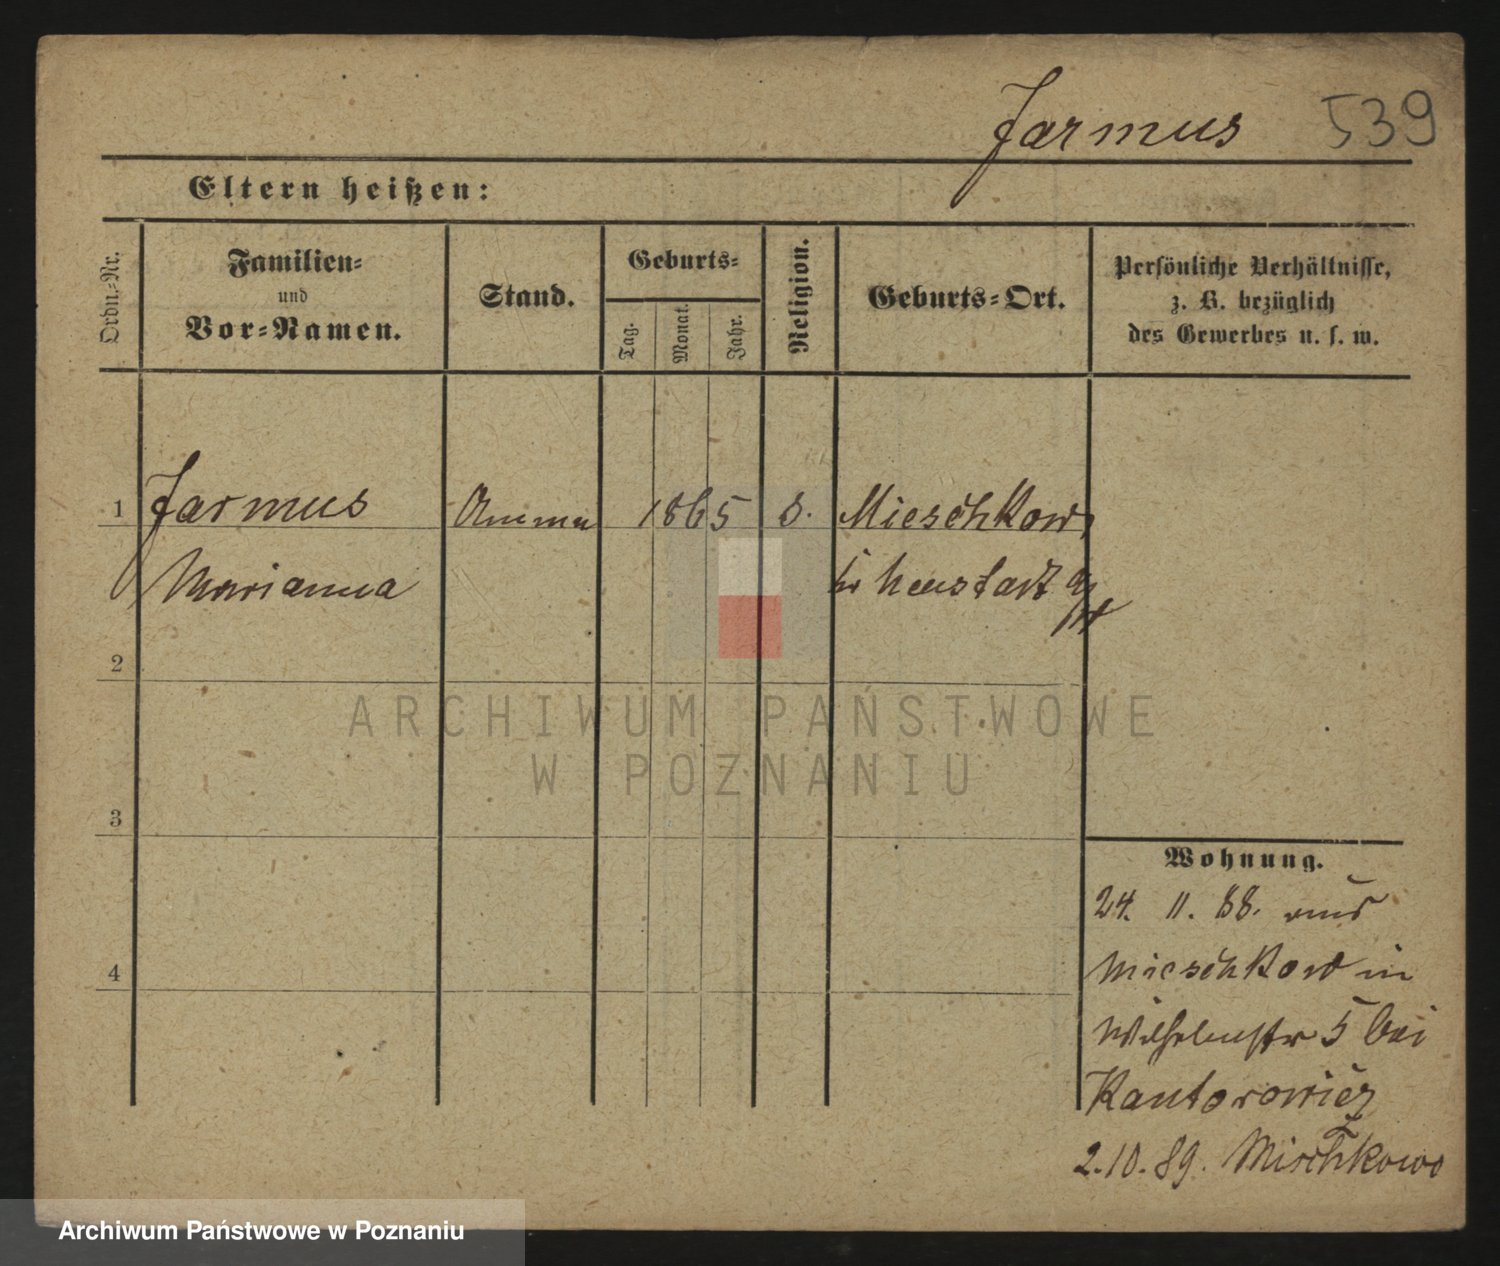 Jarmus 539
Eltern heißen:
Ordn.-Nr.
Familien-
und
Vor-Namen.
Stand.
Geburts-
Tag.
Monat.
Jahr.
Religion.
Geburts-Ort.
Persönliche Verhältnisse,
z. B. bezüglich
des Gewerbes u. s. w.
1 Jarmus Amme 1865 Mieschkow,
Marianna Neustadt a/W
2
3
4
Wohnung.
24. 11. 88. aus
Mieschkow in
Wilhelmstr 5 bei
Kantorowicz
2.10.89. Mischkowo
ARCHIWUM PAŃSTWOWE
W POZNANIU
Archiwum Państwowe w Poznaniu